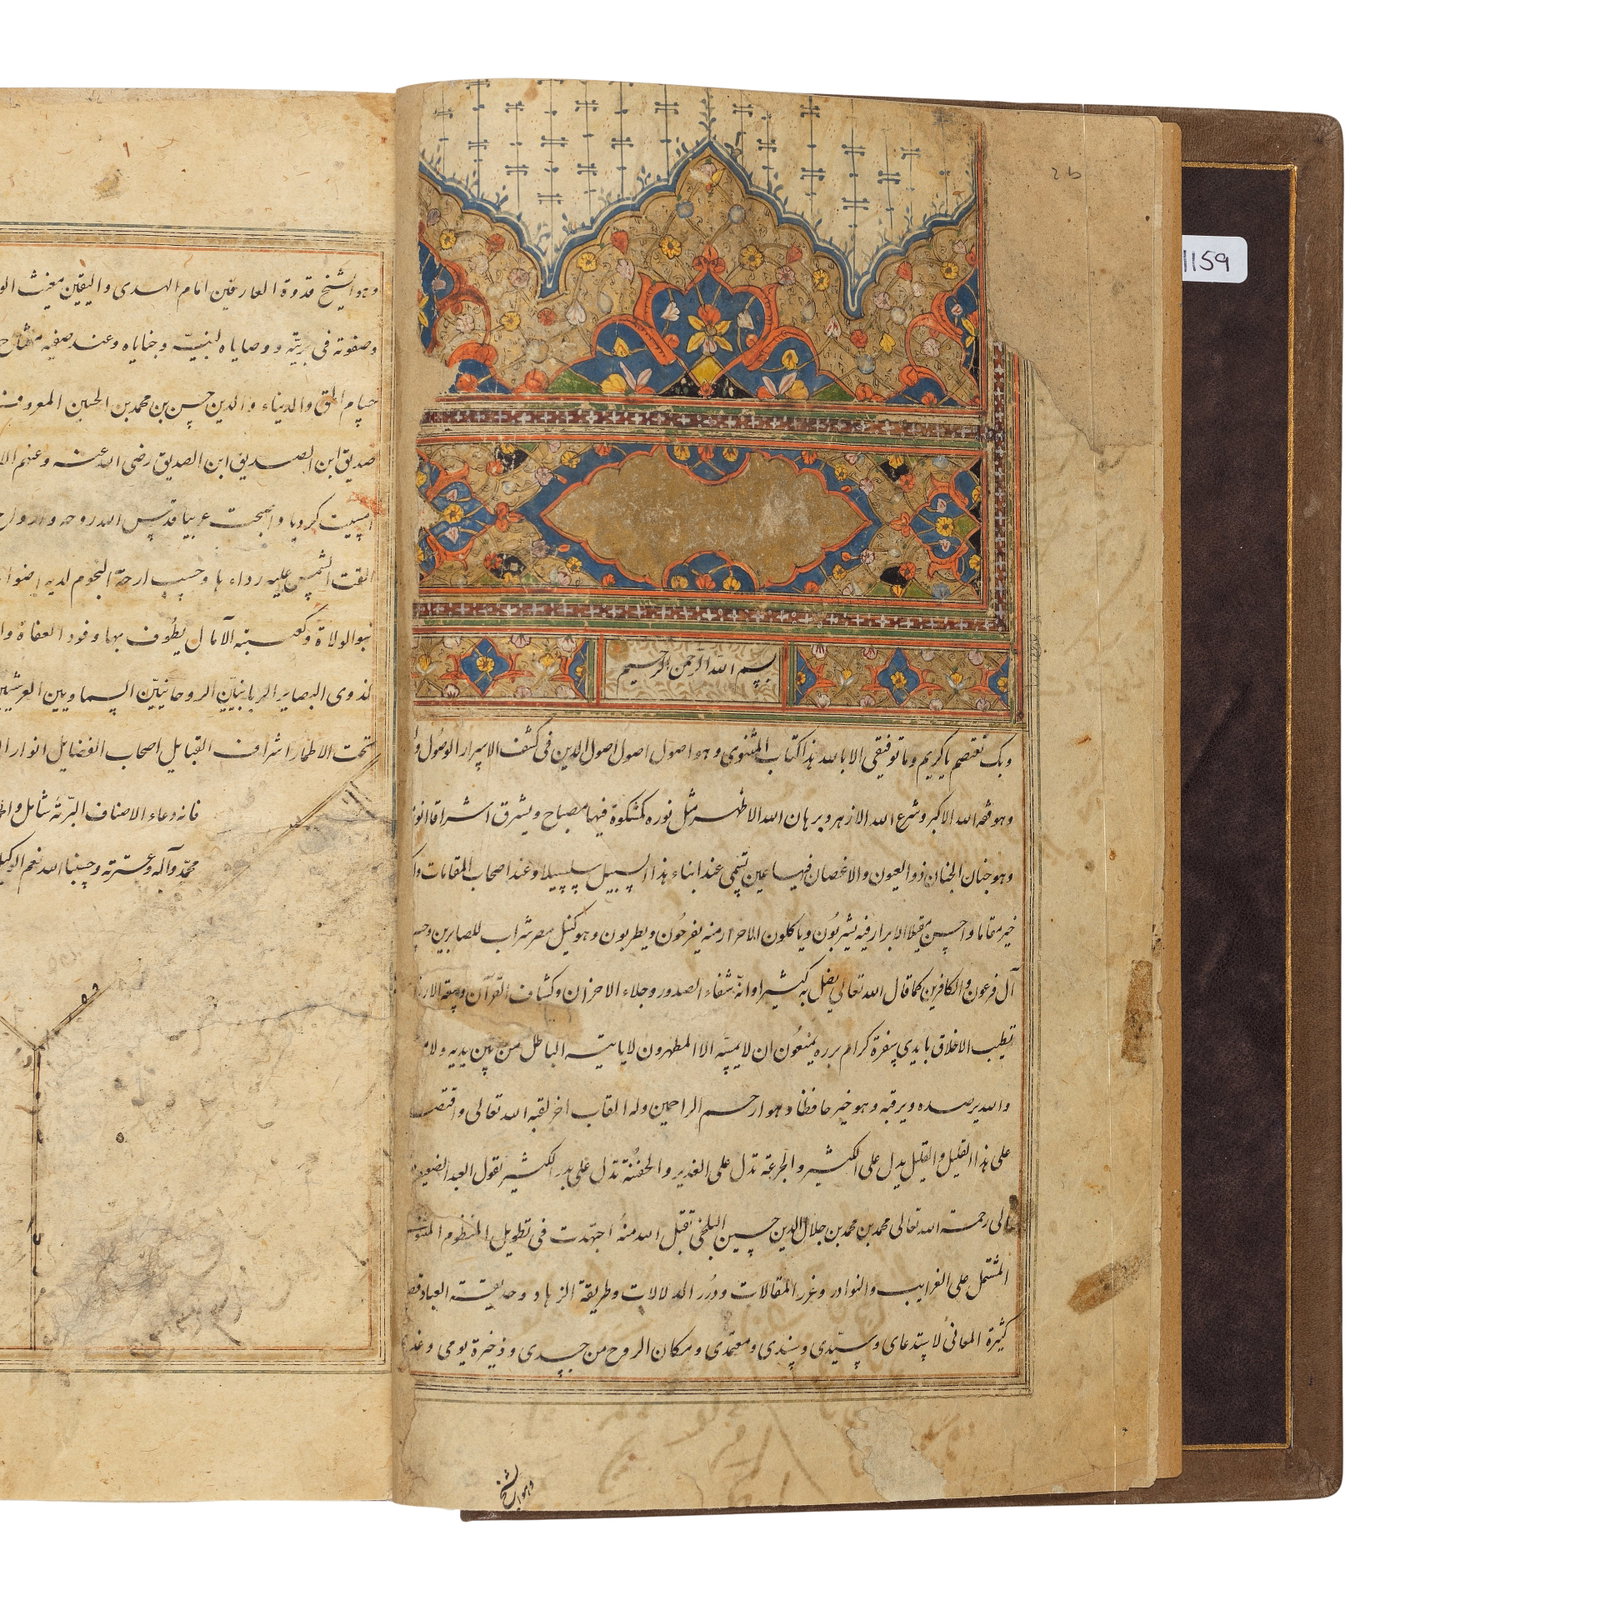 2b
1159
بسم الله الرحمن الرحيم
وبك نعتصم يا كريم وما توفيقى الا بالله هذا كتاب المثنوى وهو اصول اصول اصول الدين فى كشف الاسرار الوصول و
وهو فقه الله الاكبر وشرع الله الازهر وبرهان الله الاظهر مثل نوره كمشكوة فيها مصباح ويشرق اشراقا انور
وهو جنان الجنان ذو العيون والاغصان فيها عين تسمى عند ابناء هذا السبيل سلسبيلا وعند اصحاب المقامات
خير مقاما واحسن مقيلا الابرار فيه يشربون وياكلون الاحرار منه يفرحون ويطربون وهو كنيل مصر شراب للصابرين وحسرة
آل فرعون والكافرين كما قال الله تعالى يضل به كثيرا وانه شفاء الصدور وجلاء الاحزان وكشاف القرآن وسعة الارزاق
تطيب الاخلاق بايدى سفرة كرام بررة يمنعون ان لا يمسه الا المطهرون لا ياتيه الباطل من بين يديه ولا من
والله يرصده ويرقبه وهو خير حافظا وهو ارحم الراحمين وله القاب اخر لقبه الله تعالى واقتصرنا
على هذا القليل والقليل يدل على الكثير والجرعة تدل على الغدير والحفنة تدل على بدر الكثير يقول العبد الضعيف
الى رحمة الله تعالى محمد بن محمد بن جلال الدين حسين البلخى تقبل الله منه اجتهدت فى تطويل المنظوم المثنوى
المشتمل على الغرايب والنوادر وغرر المقالات ودرر الدلالات وطريقة الزهاد وحديقة العباد
كثيرة المعانى لاستدعاى وسيدى وسندى ومعتمدى ومكان الروح من جسدى وذخيرة يومى وغدى
وهو الشيخ
وهو الشيخ قدوة العارفين امام الهدى واليقين مغيث
وصفوته فى بريته ووصاياه لنبيه وخباياه عند صفيه مفتاح
حسام الحق والدين حسن بن محمد بن الحسين المعروف
صديق ابن الصديق ابن الصديق رضى الله عنه وعنهم
امسيت كرديا واصبحت عربيا قدس الله روحه وارواح
القت الشمس عليه رداءها وحسب ارخت النجوم لديه اضواء
بنو الولاة وكعبة الآمال يطوف بها وفود العفاة
لذوى البصاير الربانيين الروحانيين السماويين العرشيين
تحت الاطمار اشراف القبايل اصحاب الفضايل انوار
فانه دعاء الاصناف البرية شامل
محمد وآله وعترته وحسبنا الله نعم الوكيل